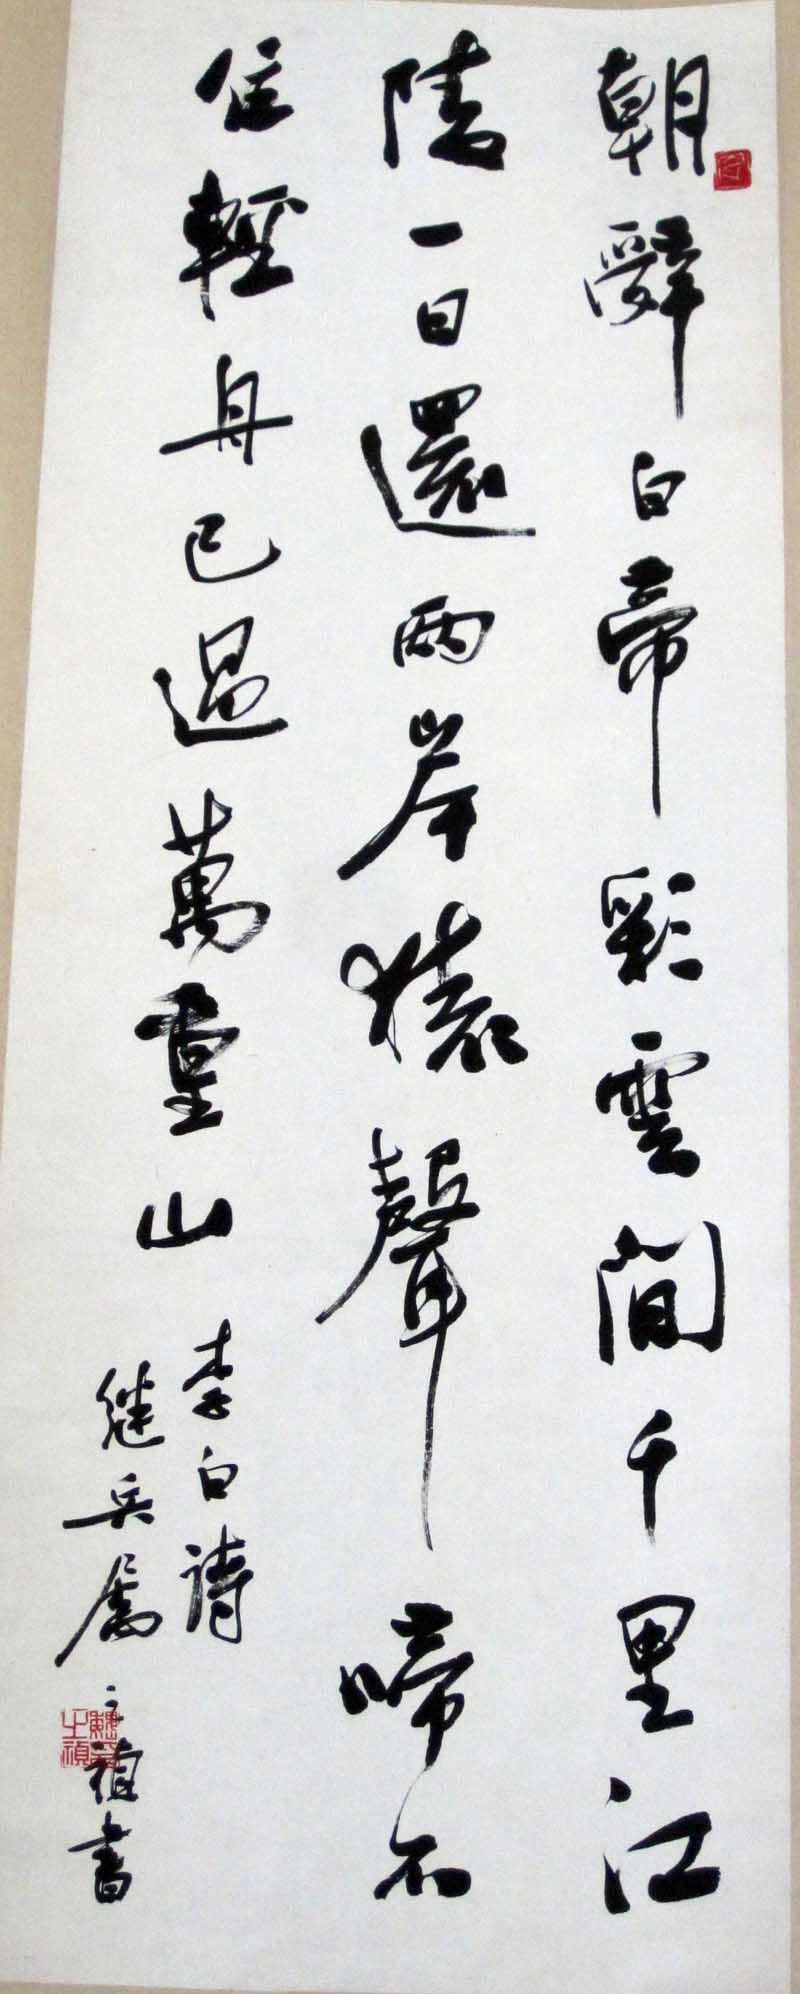 朝辭白帝彩雲間千里江
陵一日還兩岸猿聲啼不
住輕舟已過萬重山
李白詩
继兵属之禎書